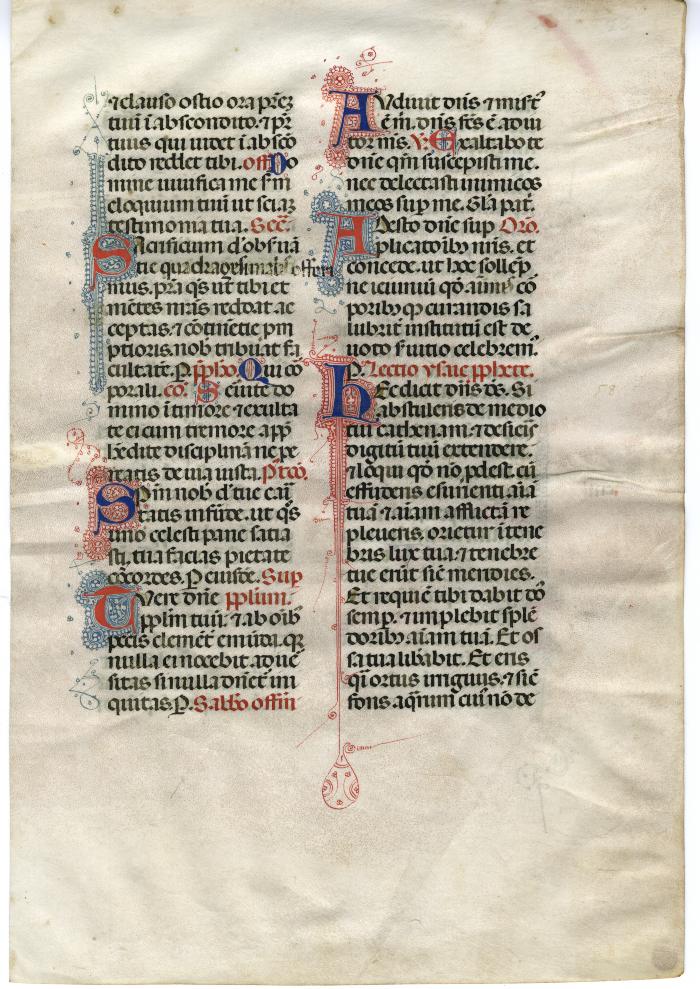 ⁊ clauso ostio ora prēz
tuū ī abscondito. ⁊ pr̄
tuus qui uidet ī absco
dito reddet tibi. off. Do
mine uiuifica me sm̄
eloquium tuū ut sciaz
testimonia tua. Sec̄.
Sacrificium d'obsuā
tie quadragesimalis offeri
mus. pra qs ut tibi et
mētes nras reddat ac
ceptas. ⁊ cōtinētie pm
ptioris. nob tribuat fa
cultatē. P. pphō. Qui cor
porali. cō. Seruite do
mino ī timore ⁊ exulta
te ei cum tremore app
hēdite disciplinā ne pe
reatis de uia iusta. P'cō.
Spm nob d'tue cari
tatis infūde. ut qs
uno celesti pane satia
sti. tua facias pietate
cōcordes. P. eiusdē. Sup
Tuere dn̄e pplm. pplium.
pplm tuū. ⁊ ab oīb
pccis clemēt emūda. qz
nulla ei nocebit aduer
sitas si nulla dn̄et ini
quitas. P. Sabbo offm
Audiuit dn̄s ⁊ misert'
ē m. dn̄s fcs ē adiu
tor ms. V. Exaltabo te
dn̄e qm suscepisti me.
nec delectasti inimicos
meos sup me. Gla pat'.
Adesto dn̄e sup Oro.
plicatoīb nris. et
concede. ut hec sollep
ne ieiuniū qō aīmis cor
poribq curandis sa
lubrit' institutū est de
uoto s'uitio celebrem'.
P. Lectio ysaie pphete.
Hec dicit dn̄s ds. Si
abstuleris de medio
tui cathenam. ⁊ desieris
digitū tuū extendere.
⁊ loqui qō nō pdest. cū
effuderis esurienti aīā
tuā ⁊ aīam afflictā re
pleueris. orietur ī tene
bris lux tua. ⁊ tenebre
tue erūt sic meridies.
Et requiē tibi dabit ds
semp. ⁊ implebit splē
dorib aīam tuā. Et os
sa tua libabit. Et eris
qi ortus iriguus. ⁊ sic
fons aq̄rum cui' nō de